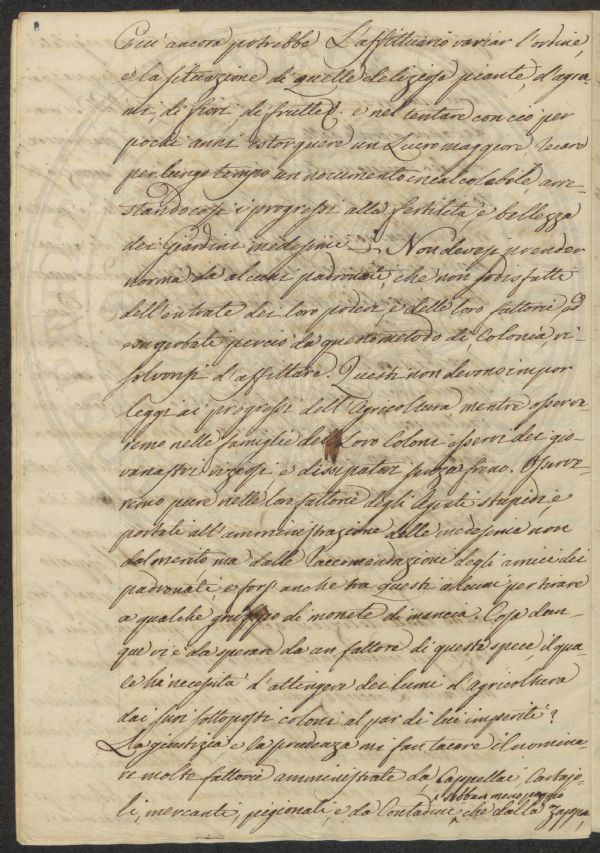 Più ancora potrebbe L'affittuario variar l'ordine,
e la situazione di quelle deliziose piante, d'agru-
mi, di fiori, di frutte: e nel tentare con ciò per
pochi anni estorquere un Lucro maggiore, recare
per lungo tempo un nocumento incalcolabile, arre-
stando così i progressi alla fertilità, e bellezza
dei Giardini medesimi. Non devesi prender
norma da alcuni padronati, che non sodisfatti
dell'entrate dei loro poderi, e delle loro fattorie, ed
esacerbati perciò da questo metodo di Colonìa, ri-
solvonsi d'affittare. Questi non devono impor
leggi ai progressi dell'Agricoltura, mentre osserve-
remo nelle famiglie dei Loro Coloni esservi dei gio-
vanastri viziosi e dissipatori senza freno. Osserve-
remo pure nelle loro fattorie degli Agenti stupidi, e
portati all'amministrazione delle medesime non
dal merito, ma dalle raccomandazioni degli amici dei
padronati, e fors'anche tra questi alcuni per tirare
a qualche gruppo di monete di mancia. Cosa dun-
que vi è da sperare da un fattore di questa specie, il qua-
le ha necessità d'attingere dei lumi d'agricoltura
dai suoi sottoposti coloni al par di lui imperiti?
La giustizia e la prudenza mi fan tacere il nomina-
re molte fattorie amministrate da Cappellai Cartajo-
li, mercanti, pigionali, e da Contadini,
sebben meno peggio
che dalla zappa,